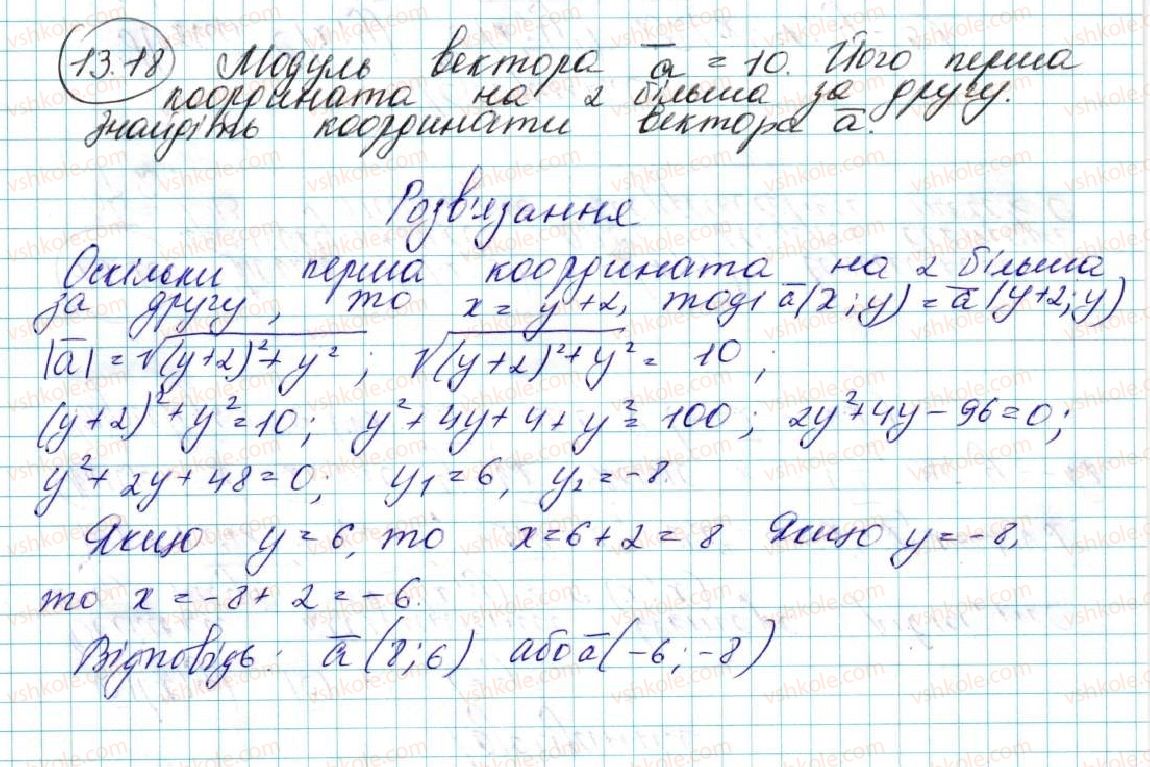 13.18 Модуль вектора a̅ = 10. Його перша
координата на 2 більша за другу.
Знайдіть координати вектора a̅.
Розв'язання
Оскільки перша координата на 2 більша
за другу, то x = y + 2, тоді a̅(x; y) = a̅(y+2; y)
|a̅| = √((y+2)² + y²); √((y+2)² + y²) = 10;
(y+2)² + y² = 10; y² + 4y + 4 + y² = 100; 2y² + 4y - 96 = 0;
y² + 2y + 48 = 0; y₁ = 6, y₂ = -8.
Якщо y = 6, то x = 6 + 2 = 8 Якщо y = -8,
то x = -8 + 2 = -6.
Відповідь: a̅(8; 6) або a̅(-6; -8)